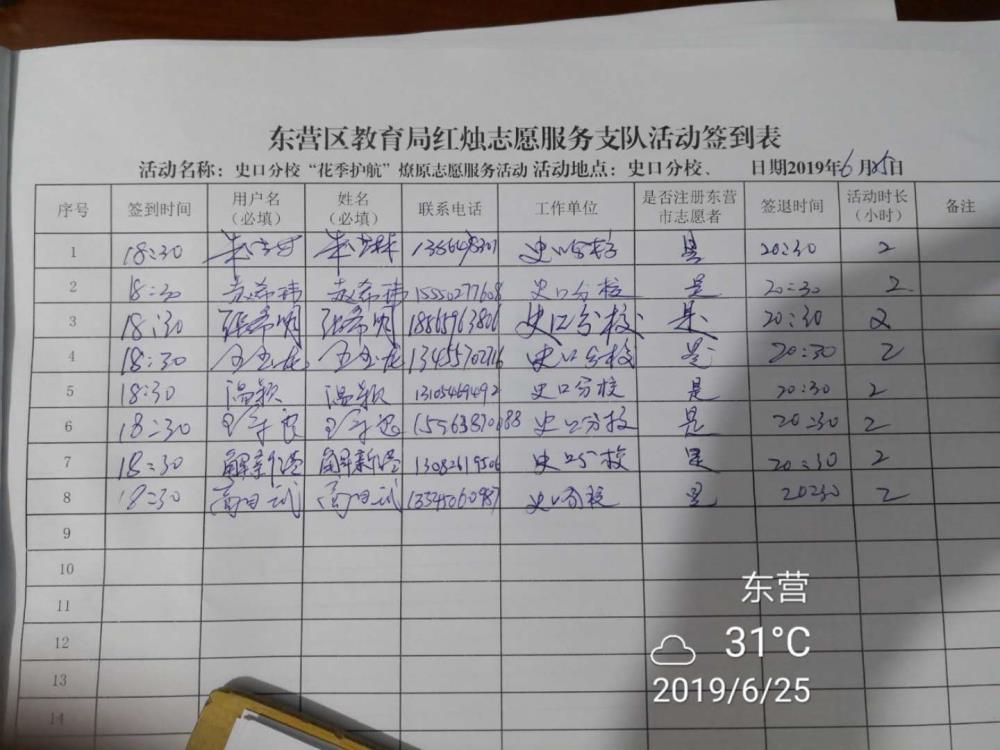 东营区教育局红烛志愿服务支队活动签到表
活动名称：史口分校“花季护航”燎原志愿服务活动 活动地点：史口分校、 日期2019年6月25日
序号 签到时间 用户名（必填） 姓名（必填） 联系电话 工作单位 是否注册东营市志愿者 签退时间 活动时长（小时） 备注
1 18:30 史口分校 是 20:30 2
2 18:30 15550277608 史口分校 是 20:30 2
3 18:30 张希明 张希明 18865963806 史口分校 是 20:30 2
4 18:30 13455702716 史口分校 是 20:30 2
5 18:30 温颖 温颖 13105469492 史口分校 是 20:30 2
6 18:30 15563870188 史口分校 是 20:30 2
7 18:30 13082619506 史口分校 是 20:30 2
8 18:30 史口分校 是 2030 2
9
10
11
12
13
14
东营
31°C
2019/6/25